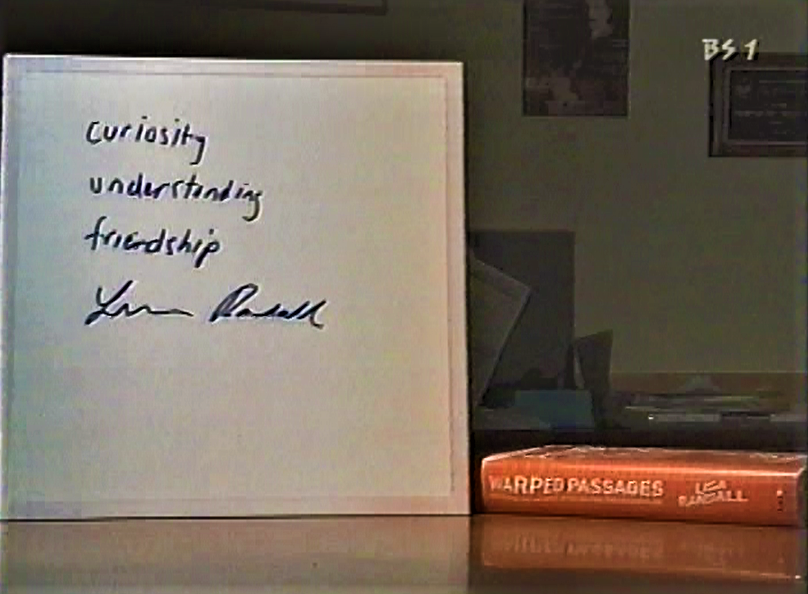 BS 1
curiosity
understanding
friendship
Lisa Randall
WARPED PASSAGES
LISA
RANDALL